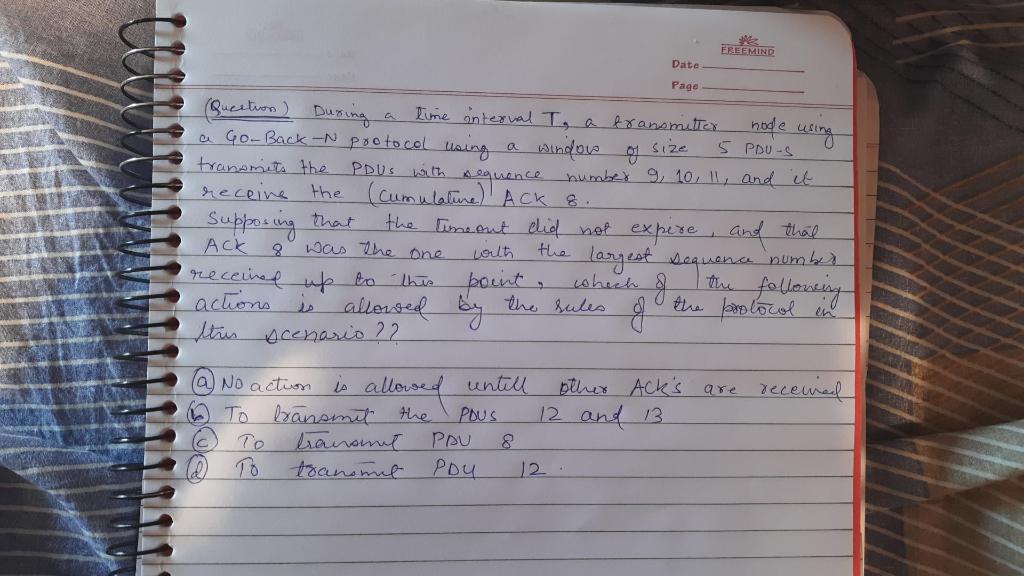 FREEMIND
Date
Page
(Question) During a time interval T, a transmitter node using
a Go-Back-N protocol using a window of size 5 PDU-s
transmits the PDUs with sequence number 9, 10, 11, and it
receive the (cumulative) ACK 8.
Supposing that the timeout did not expire, and that
ACK 8 was the one with the largest sequence number
received up to this point, which of the following
actions is allowed by the rules of the protocol in
this scenario??
(a) No action is allowed untill other ACK's are received
(b) To transmit the PDUs 12 and 13
(c) To transmit PDU 8
(d) To transmit PDU 12.